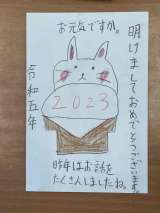 明けましておめでとうございます。
お元気ですか。
令和五年
2023
昨年はお話を
たくさんしましたね。